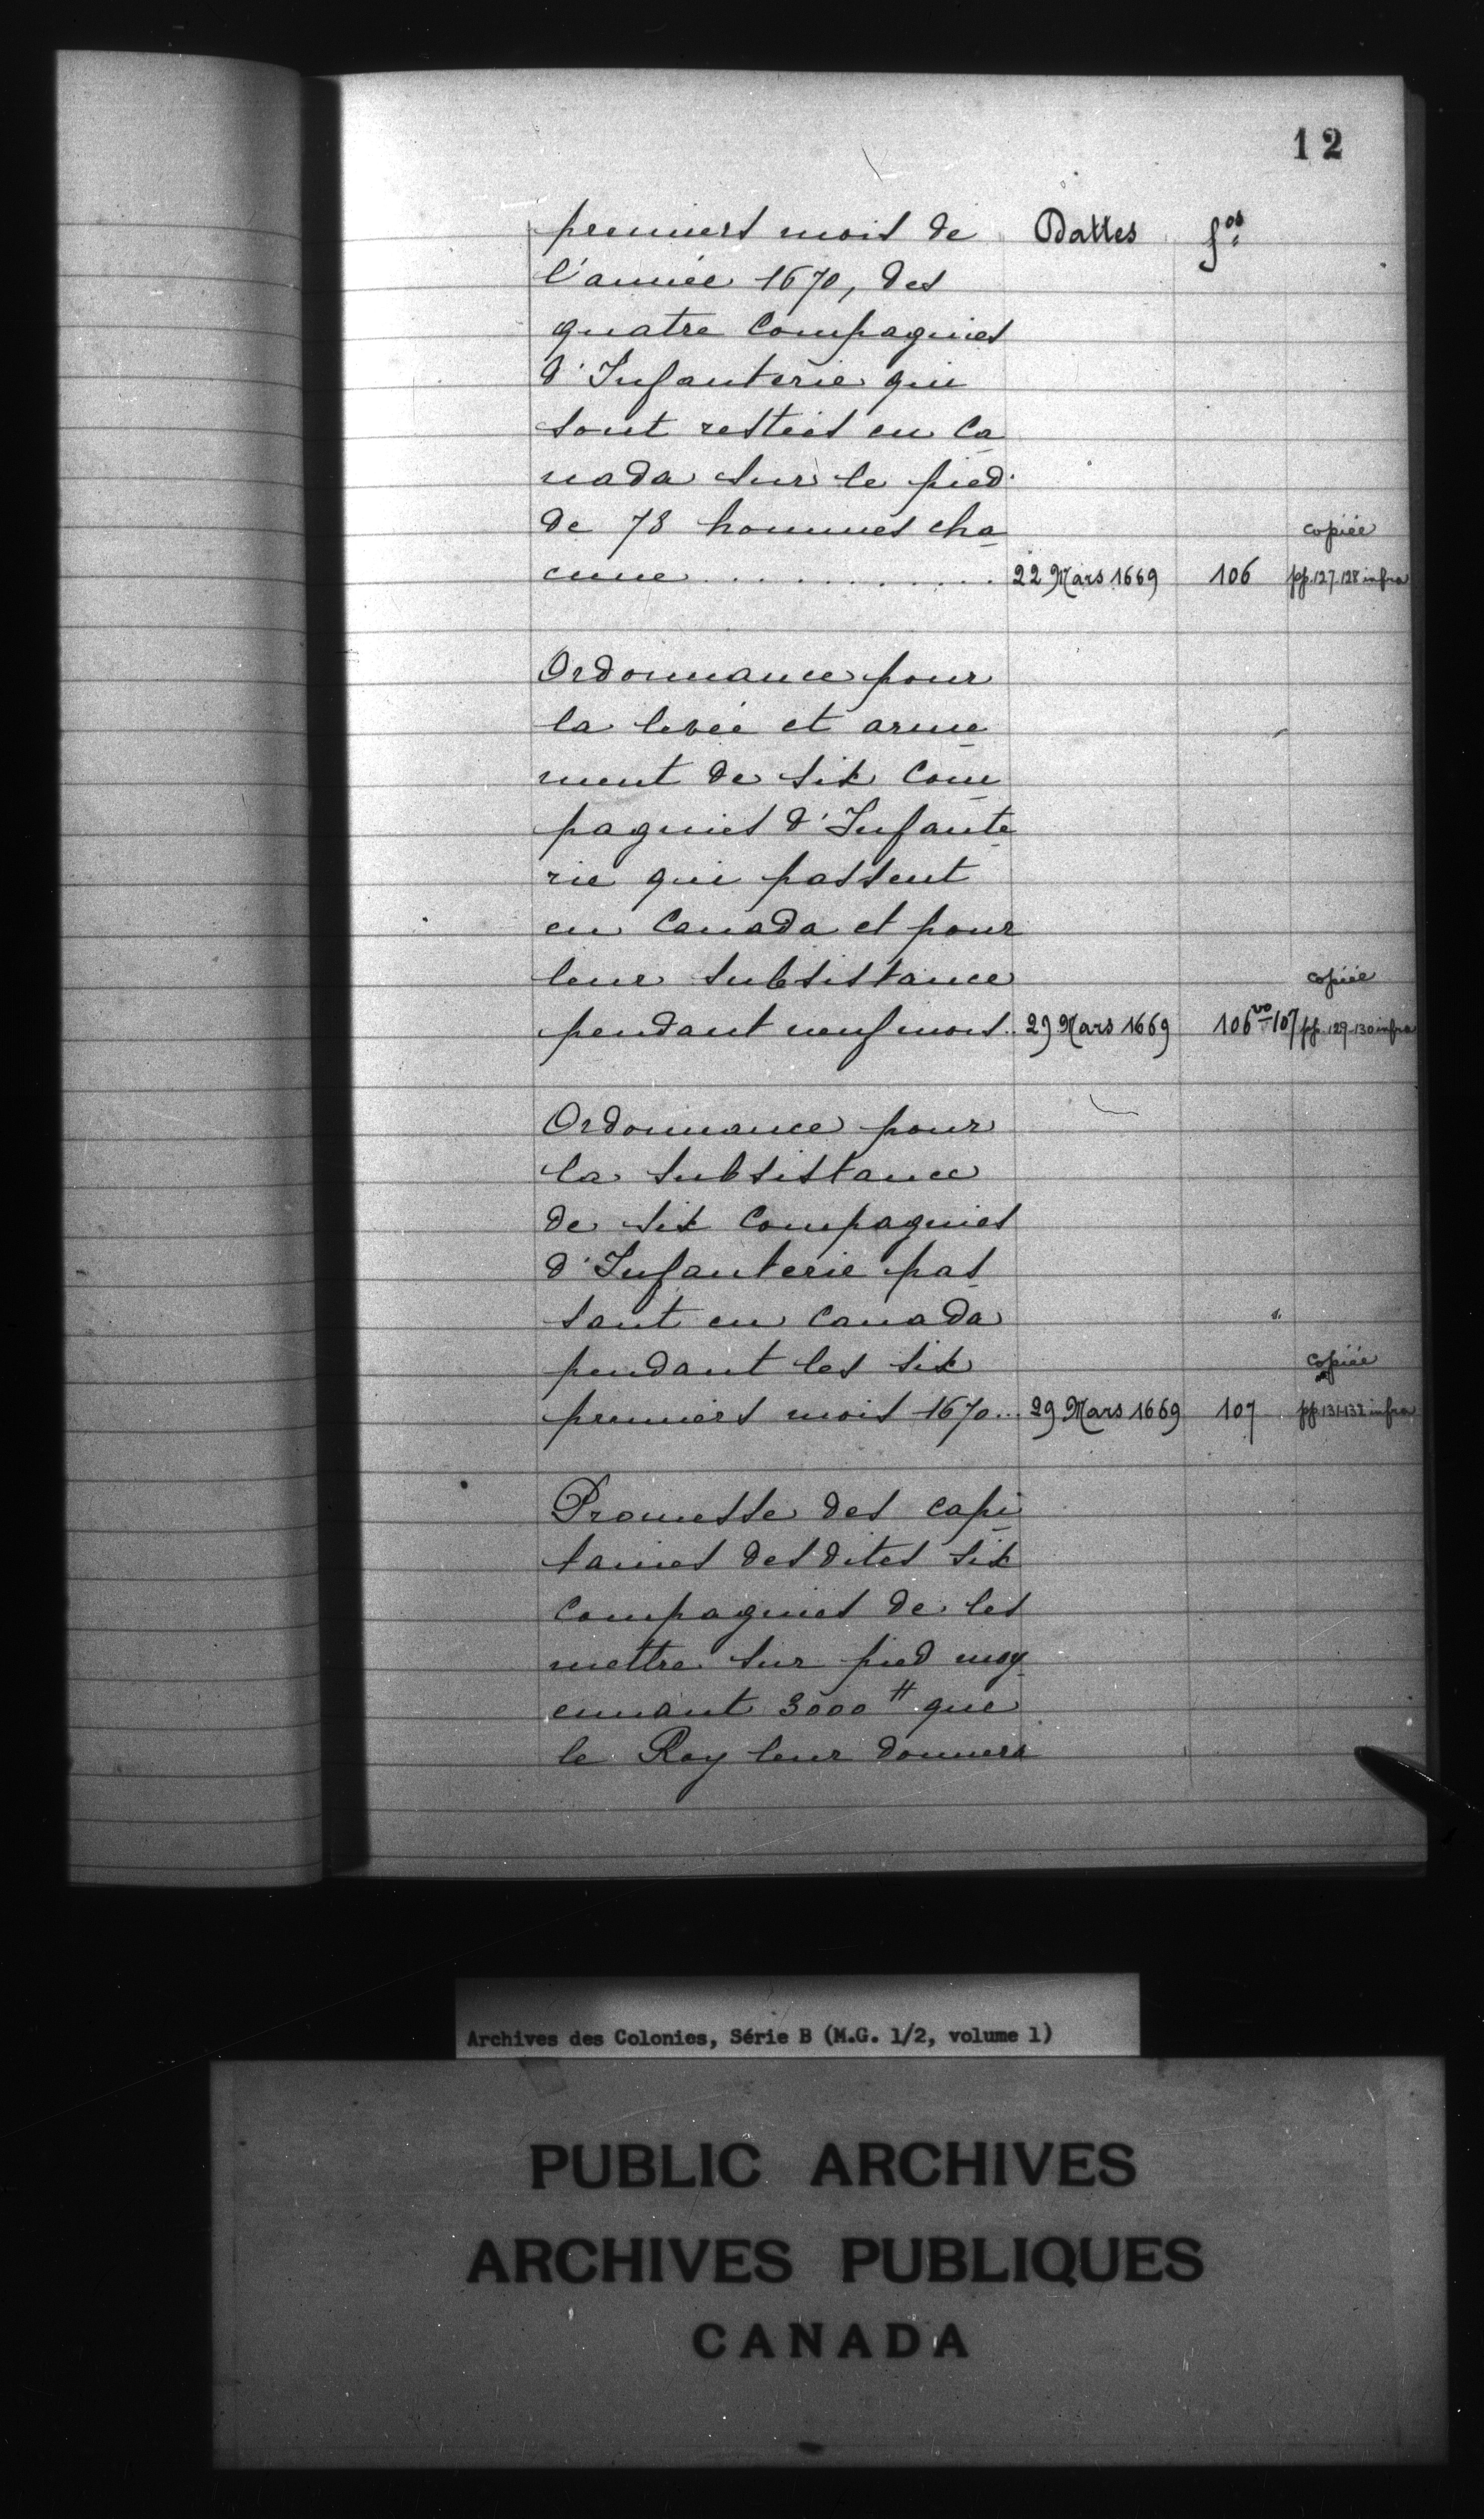 12
premiers mois de Dattes fos
l'année 1670, des
quatre Compagnies
d'Infanterie qui
sont restées en Ca
nada sur le pied
de 78 hommes cha copiée
cune............ 22 Mars 1669 106 pp. 127-128 infra
Ordonnance pour
la levée et arme
ment de six Com
pagnies d'Infante
rie qui passent
en Canada et pour
leur subsistance copiée
pendant neuf mois.. 29 Mars 1669 106vo-107 pp. 129-130 infra
Ordonnance pour
la subsistance
de six Compagnies
d'Infanterie pas
sant en Canada
pendant les six copiée
premiers mois 1670... 29 Mars 1669 107 pp. 131-132 infra
Promesse des capi
taines desdites six
Compagnies de les
mettre sur pied moy
ennant 3000 # que
le Roy leur donnera
Archives des Colonies, Série B (M.G. 1/2, volume 1)
PUBLIC ARCHIVES
ARCHIVES PUBLIQUES
CANADA